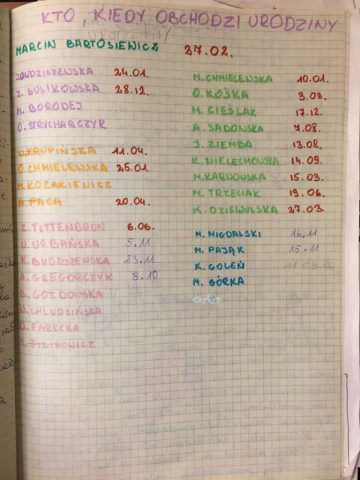 KTO, KIEDY OBCHODZI URODZINY
MARCIN BARTOSIEWICZ 27.02.
24.01.
J. GULIKOWSKA 28.12.
M. BORODEJ
O. STRYCHARCZYK
KRUPIŃSKA 11.04.
O. CHMIELEWSKA 25.01
M. KOZAKIEWICZ
A. PACA 20.04.
Z. TITTENBRUN 6.06.
U. URBAŃSKA 5.11
K. BUDZISZEWSKA 23.11
A. GREGORCZYK 8.10
GOZDOWSKA
CHLUDZIŃSKA
FARECKA
FILIPOWICZ
M. CHMIELEWSKA 10.01.
O. KOŚKA 3.02.
M. CIEŚLAK 17.12.
A. SADOWSKA 7.08.
J. ZIEMBA 13.08.
K. NIELECHOWSKA 14.09.
M. KARWOWSKA 15.03.
M. TRZECIAK 13.06.
K. DZIEWULSKA 27.03
M. MIGDALSKI 16.11
M. PAJĄK 15.11
K. GOLEŃ
M. GÓRKA